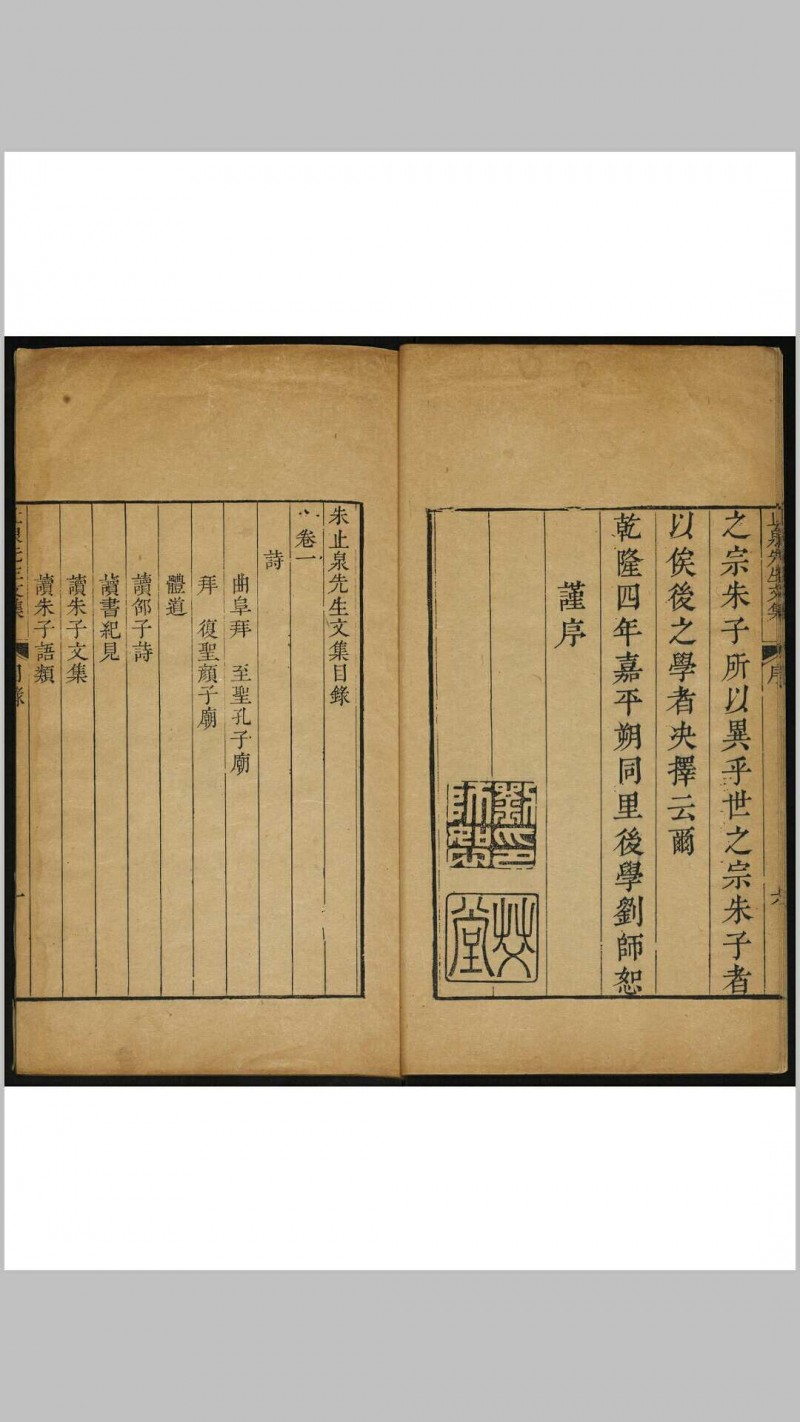 止泉先生文集
序
六
之宗朱子所以異乎世之宗朱子者
以俟後之學者决擇云爾
乾隆四年嘉平朔同里後學劉師恕
謹序
朱止泉先生文集目錄
卷一
詩
曲阜拜 至聖孔子廟
拜 復聖顏子廟
體道
讀邵子詩
讀書紀見
讀朱子文集
讀朱子語類
止泉先生文集
目錄
一